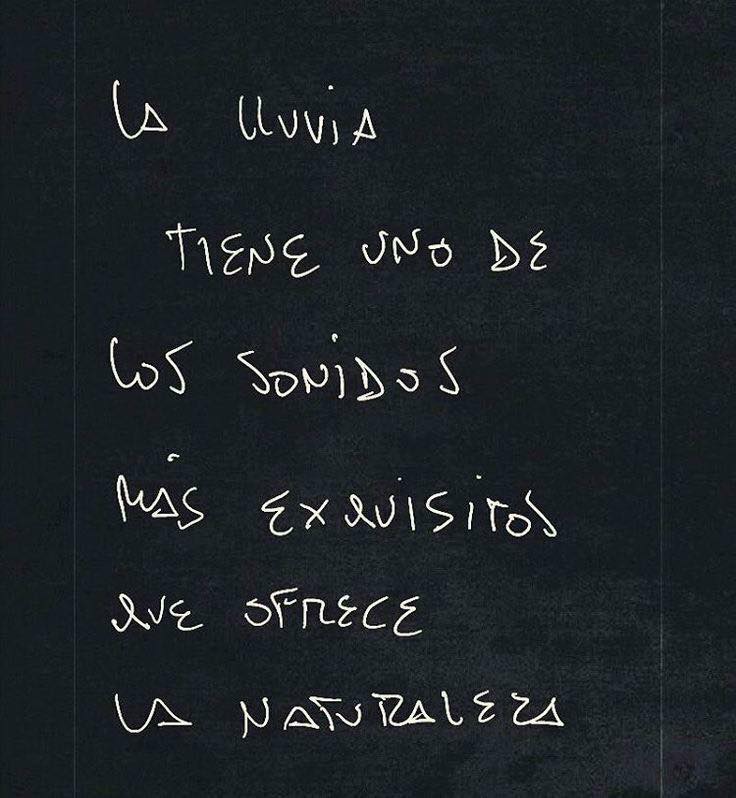 LA LLUVIA
TIENE UNO DE
LOS SONIDOS
MÁS EXQUISITOS
QUE OFRECE
LA NATURALEZA